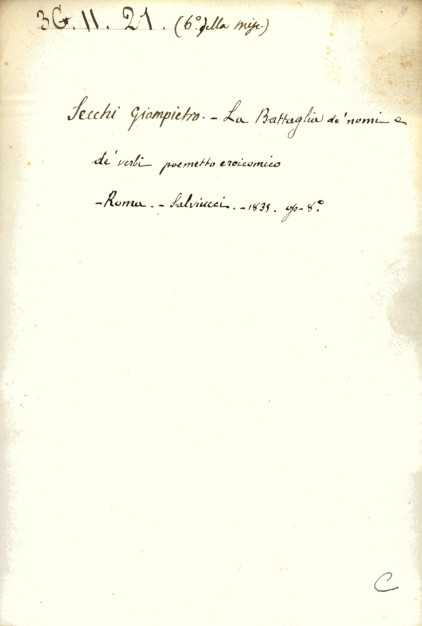 36. 11. 21. (6º della misc.)
Secchi Giampietro. - La Battaglia de' nomi e
de' verbi poemetto eroicomico
- Roma. - Salviucci. - 1831. 8º
C